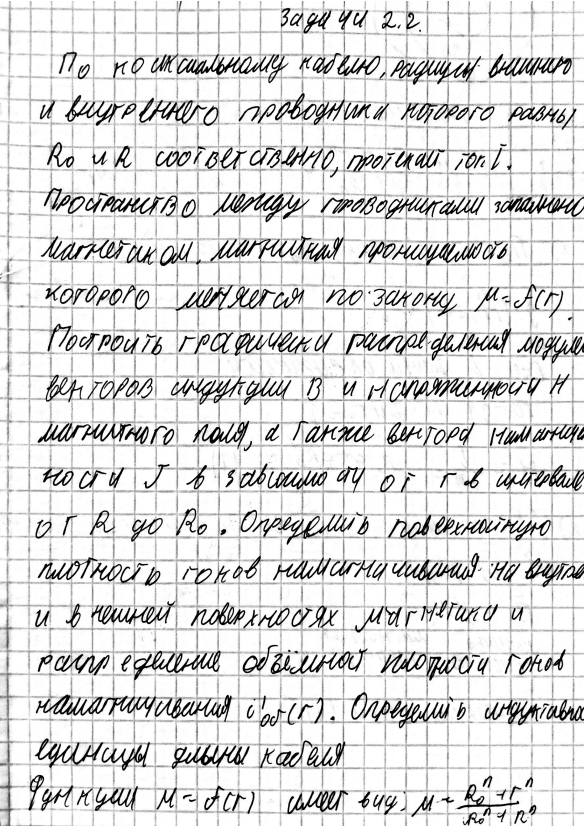 Задачи 2.2.
По коаксиальному кабелю, радиусы внешнего
и внутреннего проводника которого равны
R₀ и R соответственно, протекает ток I.
Пространство между проводниками заполнено
магнетиком, магнитная проницаемость
которого меняется по закону μ=f(r)
Построить графически распределения модулей
векторов индукции B и напряженности H
магнитного поля, а также вектора намагничен
ности J в зависимости от r в интервале
от R до R₀. Определить поверхностную
плотность токов намагничивания на внутр
и внешней поверхностях магнетика и
распределение объёмной плотности токов
намагничивания i'об(r). Определить индуктивнос
единицы длины кабеля
Функция μ=f(r) имеет вид: μ = (R₀ⁿ+rⁿ)/(R₀ⁿ+Rⁿ)